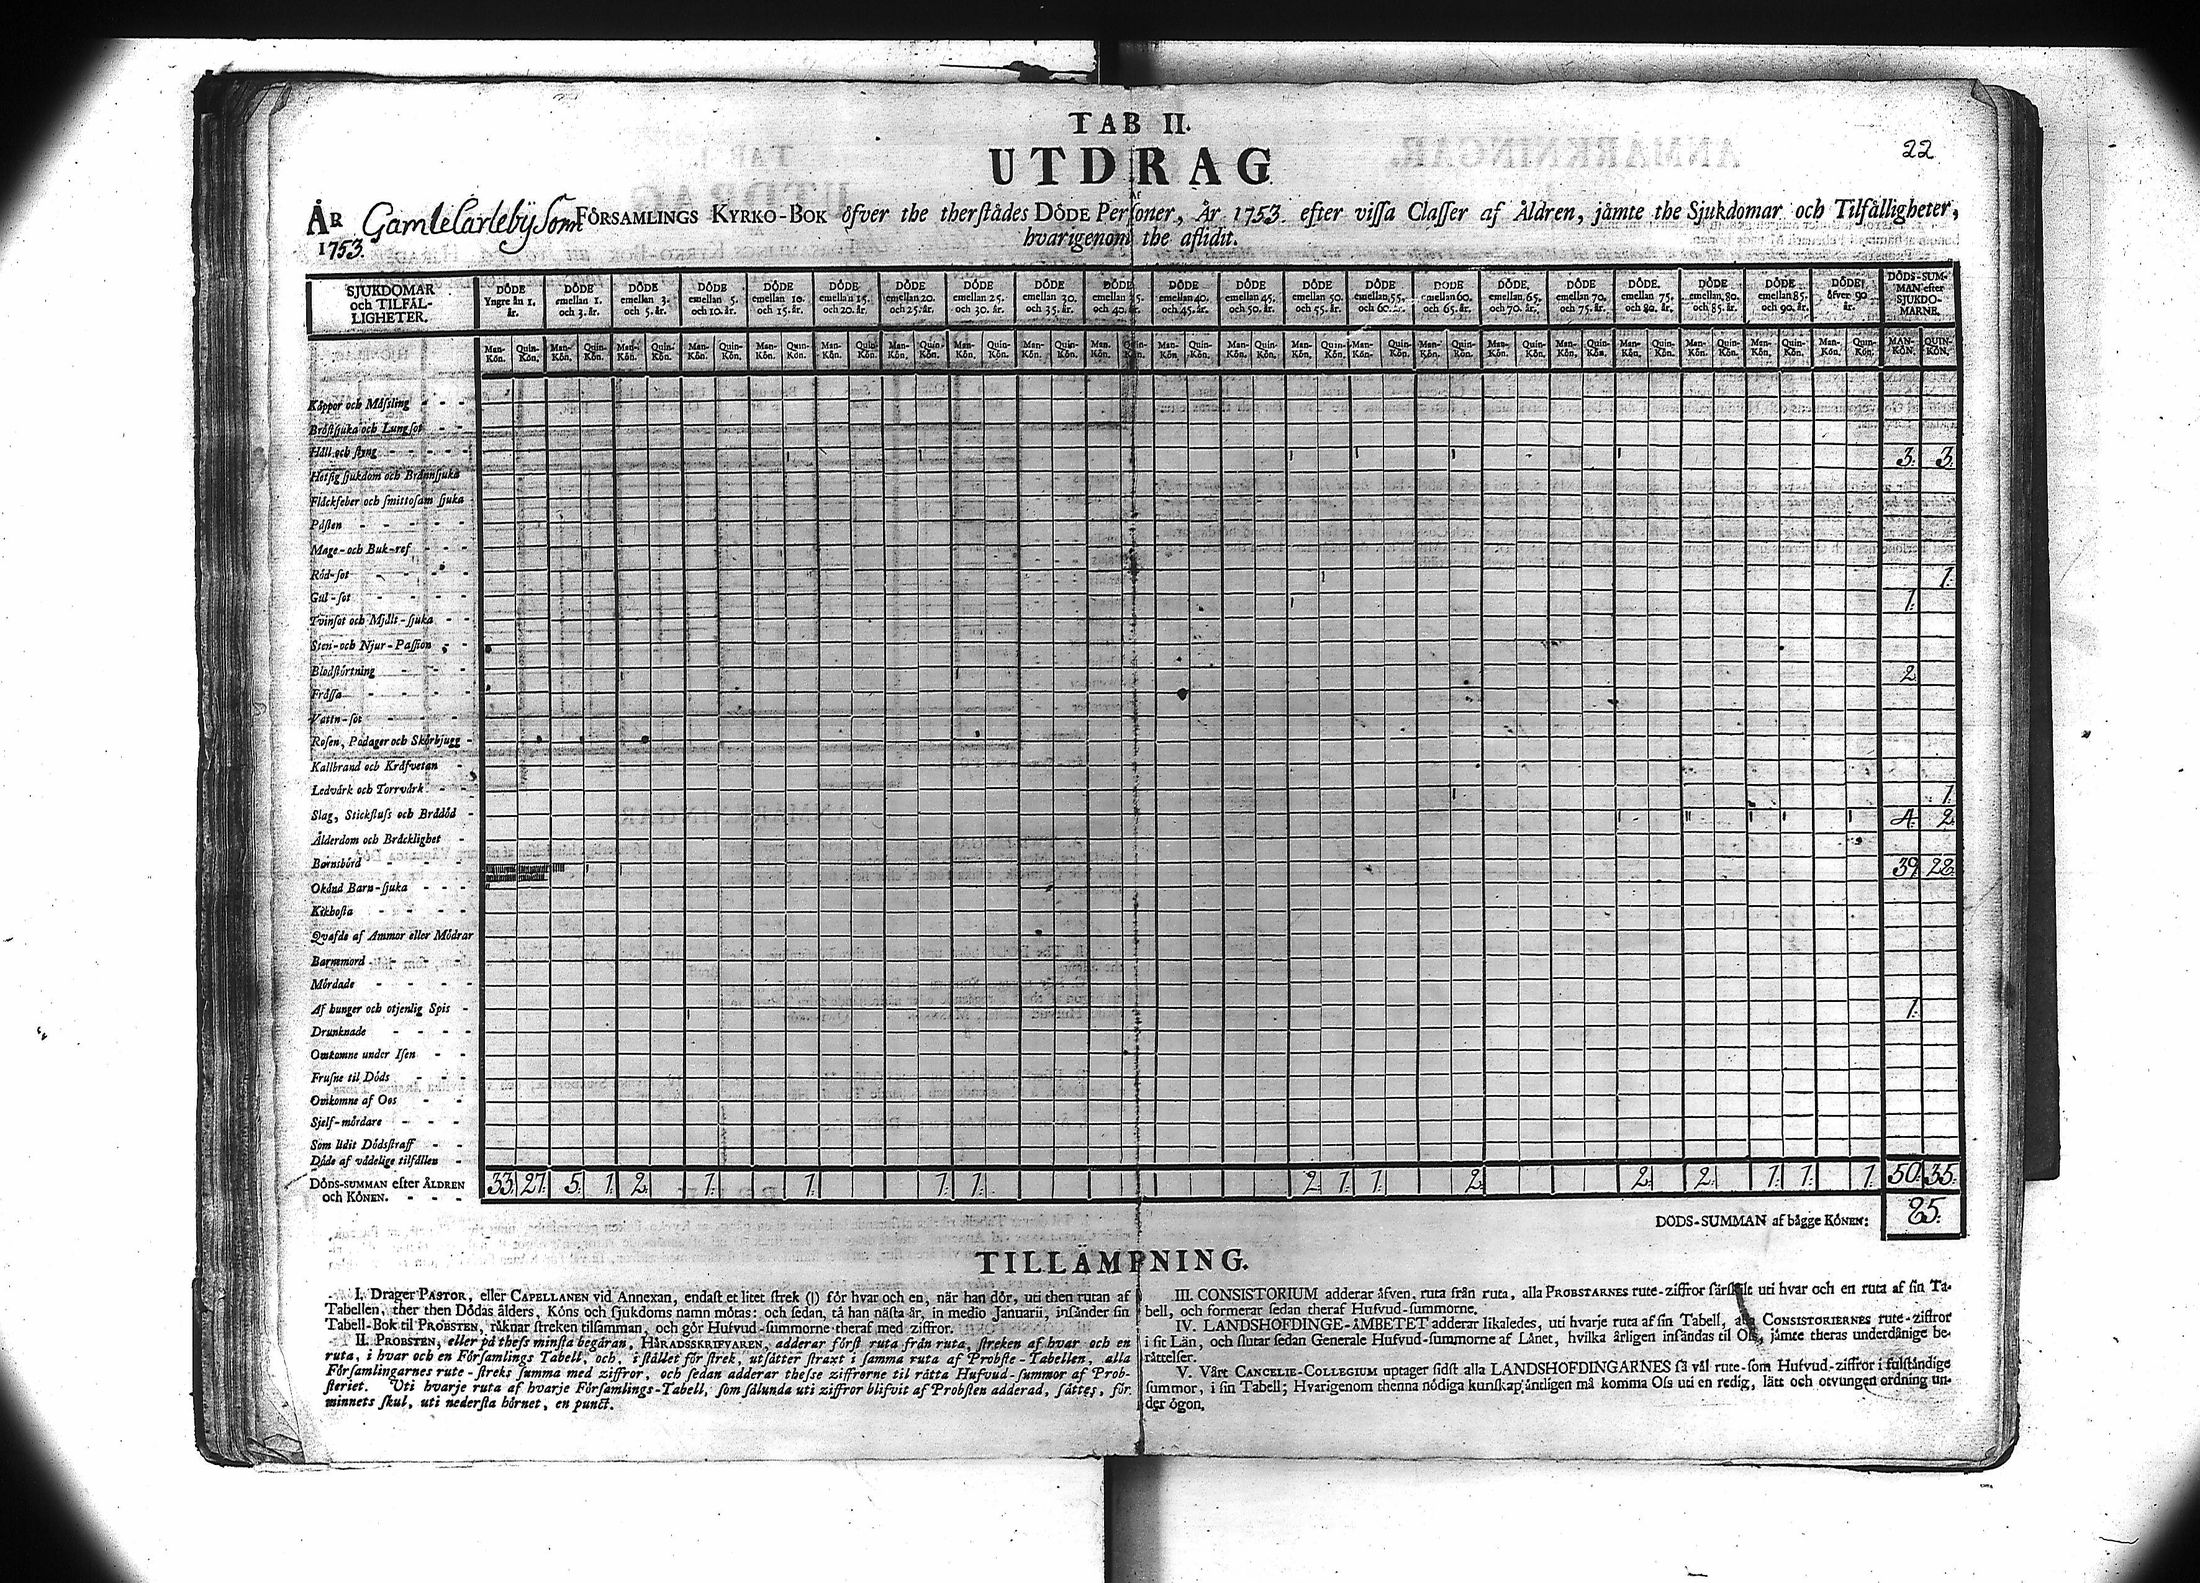 TAB II.
22
UTDRAG
AF
ÅR Gamlecarleby Sokn FÖRSAMLINGS KYRKO-BOK öfver the therstädes DÖDE Personer, År 1753. efter vissa Classer af Åldren, jämte the Sjukdomar och Tilfälligheter,
1753. hvarigenom the aflidit.
SJUKDOMAR och TILFÄLLIGHETER.
DÖDE Yngre än 1. år. DÖDE emellan 1. och 3. år. DÖDE emellan 3. och 5. år. DÖDE emellan 5. och 10. år. DÖDE emellan 10. och 15. år. DÖDE emellan 15. och 20. år. DÖDE emellan 20. och 25. år. DÖDE emellan 25. och 30. år. DÖDE emellan 30. och 35. år. DÖDE emellan 35. och 40. år. DÖDE emellan 40. och 45. år. DÖDE emellan 45. och 50. år. DÖDE emellan 50. och 55. år. DÖDE emellan 55. och 60. år. DÖDE emellan 60. och 65. år. DÖDE emellan 65. och 70. år. DÖDE emellan 70. och 75. år. DÖDE emellan 75. och 80. år. DÖDE emellan 80. och 85. år. DÖDE emellan 85. och 90. år. DÖDE öfver 90 år. DÖDS-SUMMAN efter SJUKDOMARNE.
Man-Kön. Quin-Kön. Man-Kön. Quin-Kön. Man-Kön. Quin-Kön. Man-Kön. Quin-Kön. Man-Kön. Quin-Kön. Man-Kön. Quin-Kön. Man-Kön. Quin-Kön. Man-Kön. Quin-Kön. Man-Kön. Quin-Kön. Man-Kön. Quin-Kön. Man-Kön. Quin-Kön. Man-Kön. Quin-Kön. Man-Kön. Quin-Kön. Man-Kön. Quin-Kön. Man-Kön. Quin-Kön. Man-Kön. Quin-Kön. Man-Kön. Quin-Kön. Man-Kön. Quin-Kön. Man-Kön. Quin-Kön. Man-Kön. Quin-Kön. Man-Kön. Quin-Kön. MAN-KÖN. QUIN-KÖN.
Koppor och Mässling - - -
Bröstsjuka och Lungsot - -
Håll och styng - - - - - 3. 3.
Hetsig sjukdom och Brännsjuka
Fläckfeber och smittosam sjuka
Pästen - - - - -
Mage- och Buk-ref - - -
Röd-sot - - - - 1.
Gul-sot - - - - - 1.
Tvinsot och Mjält-sjuka - -
Sten- och Njur-Passion - -
Blodstörtning - - - - 2
Frässa - - - - -
Vattn-sot - - - -
Rosen, Podager och Skörbjugg -
Kallbrand och Kräfvetan -
Ledvärk och Torrvärk - - - 1.
Slag, Stickfluss och Brådöd - 4. 2.
Ålderdom och Bräcklighet -
Barnsbörd - - - - 39. 22.
Okänd Barn-sjuka - - -
Kikhosta - - - -
Qvafde af Ammor eller Mödrar
Barnemord - - - -
Mördade - - - - -
Af hunger och otjenlig Spis - 1.
Drunknade - - - -
Omkomne under Isen - -
Frusne til Döds - - -
Omkomne af Oos - -
Sjelf-mördare - - -
Som lidit Dödsstraff - -
Döde af vådelige tilfällen -
DÖDS-SUMMAN efter ÅLDREN och KÖNEN. - - - 33. 27. 5. 1. 2. 1. 1. 1. 1. 2. 1. 1. 2. 2. 2. 1. 1. 1. 50. 35.
DÖDS-SUMMAN af bägge KÖNEN: 85.
TILLÄMPNING.
I. Drager PASTOR, eller CAPELLANEN vid Annexan, endast et litet strek (|) för hvar och en, när han dör, uti then rutan af
Tabellen, ther then Dödas ålders, Köns och sjukdoms namn mötas: och sedan, tå han nästa år, in medio Januarii, insänder sin
Tabell-Bok til PROBSTEN, räknar streken tilsamman, och gör Hufvud-summorne theraf med ziffror.
II. PROBSTEN, eller på thess minsta begäran, HÄRADSSKRIFVAREN, adderar först ruta från ruta, streken af hvar och en
ruta, i hvar och en Församlings Tabell, och, i stället för strek, utsätter straxt i samma ruta af Probste-Tabellen, alla
Församlingarnes rute-streks summa med ziffror, och sedan adderar thesse ziffrorne til rätta Hufvud-summor af Prob-
steriet. Uti hvarje ruta af hvarje Församlings-Tabell, som sålunda uti ziffror blifvit af Probsten adderad, sättes, för
minnets skul, uti nedersta hörnet, en punct.
III. CONSISTORIUM adderar äfven, ruta från ruta, alla PROBSTARNES rute-ziffror särskilt uti hvar och en ruta af sin Ta-
bell, och formerar sedan theraf Hufvud-summorne.
IV. LANDSHÖFDINGE-ÄMBETET adderar likaledes, uti hvarje ruta af sin Tabell, alla CONSISTORIERNES rute-ziffror
i sit Län, och slutar sedan Generale Hufvud-summorne af Länet, hvilka årligen insändas til Oss, jämte theras underdånige be-
rättelser.
V. Vårt CANCELIE-COLLEGIUM uptager sidst alla LANDSHÖFDINGARNES så väl rute-som Hufvud-ziffror i fulständige
summor, i sin Tabell; Hvarigenom thenna nödiga kunskap äntligen må komma Oss uti en redig, lätt och otvungen ordning un-
der ögon.